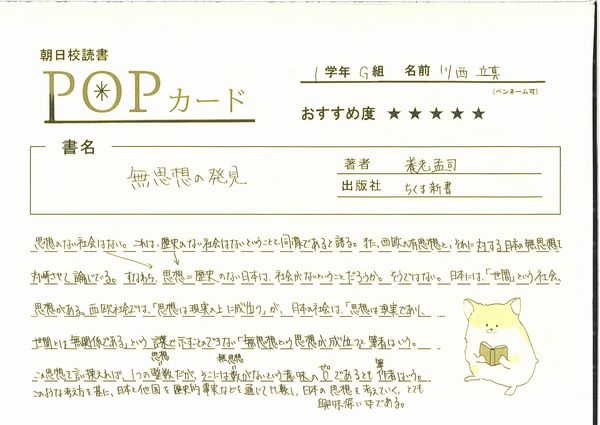 朝日校読書
POPカード
1 学年 G 組 名前 川西 立真
(ペンネーム可)
おすすめ度 ★★★★★
書名
無思想の発見
著者 養老孟司
出版社 ちくま新書
思想のない社会はない。これは、歴史のない社会はないということと同義であると語る。また、西欧の有思想と、それに対する日本の無思想を
対峙させて論じている。すなわち、思想=歴史のない日本は、社会がないということだろうか。そうではない。日本には、「世間」という社会、
思想がある。西欧社会では、「思想は現実の上に成り立つ」が、日本の社会は、「思想は現実であり、
世間とは無関係である」という言葉で示すことのできない「無思想という思想」が成り立つと筆者はいう。
思想 無思想
この思想を言い換えれば、1つの整数だが、そこには数がないという意味の"0"であるとも筆者はいう。
このような考え方を基に、日本と他国を歴史的事実などを通じて比較し、日本の思想を考えていく、とても
興味深い本である。